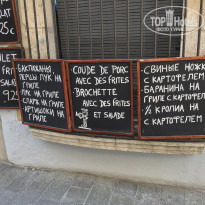 TOP HOTELS
ФОТО ТУРИСТОВ
LAT
25€
ILET
FRITES
SALADE
9.25
БАКЛАЖАНЫ
ПЕРЦЫ ЛУК НА
ГРИЛЕ
ЛУК НА ГРИЛЕ
СПАРЖА НА ГРИЛЕ
АРТИШОКИ НА
ГРИЛЕ
COUDE DE PORC
AVEC DES FRITES
BROCHETTE
AVEC DES FRITES
ET SALADE
-СВИНЫЕ НОЖКИ
С КАРТОФЕЛЕМ
-БАРАНИНА НА
ГРИЛЕ С КАРТОФЕЛ
-½ КРОЛИКА НА
ГРИЛЕ
С КАРТОФЕЛЕМ